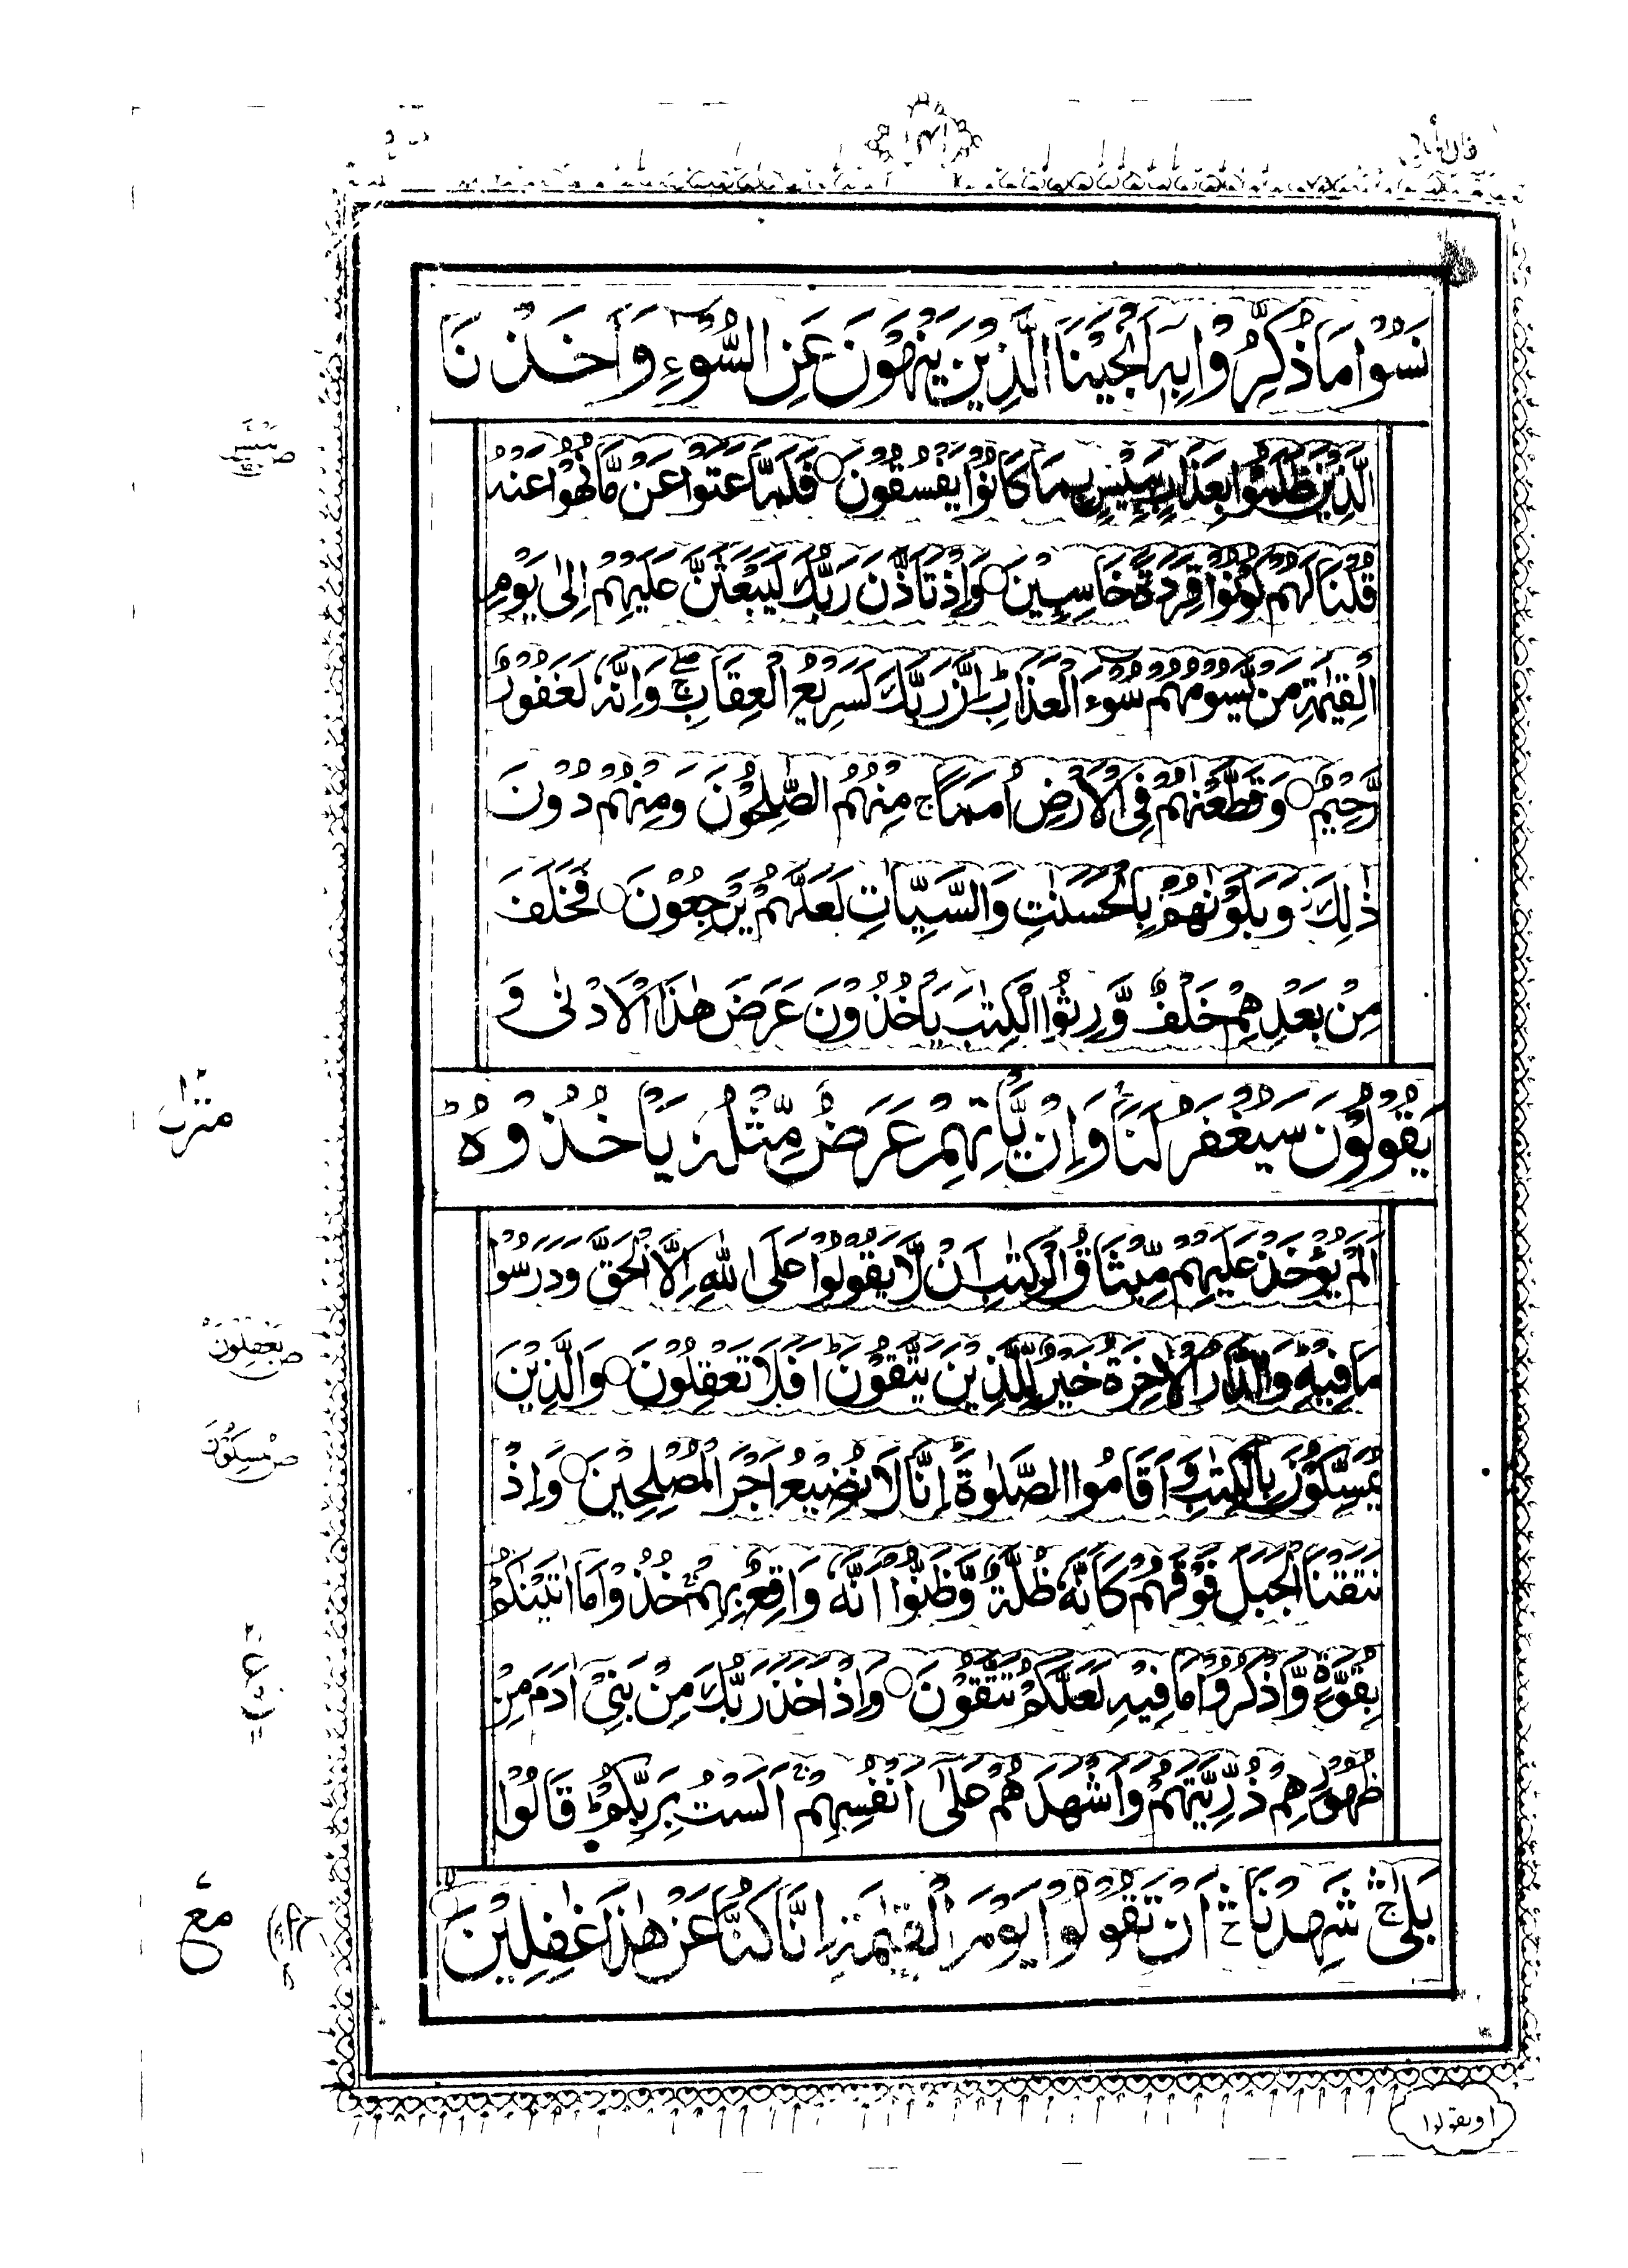 نَسُوْا مَا ذُكِّرُوْا بِهٖۤ اَنْجَيْنَا الَّذِيْنَ يَنْهَوْنَ عَنِ السُّوْٓءِ وَاَخَذْنَا
الَّذِيْنَ ظَلَمُوْا بِعَذَابٍۭ بَئِيْسٍۭ بِمَا كَانُوْا يَفْسُقُوْنَ ۝ فَلَمَّا عَتَوْا عَنْ مَّا نُهُوْا عَنْهُ
قُلْنَا لَهُمْ كُوْنُوْا قِرَدَةً خَاسِـِٕيْنَ ۝ وَاِذْ تَاَذَّنَ رَبُّكَ لَيَبْعَثَنَّ عَلَيْهِمْ اِلٰى يَوْمِ
الْقِيٰمَةِ مَنْ يَّسُوْمُهُمْ سُوْٓءَ الْعَذَابِ ؕ اِنَّ رَبَّكَ لَسَرِيْعُ الْعِقَابِ ۚۖ وَاِنَّهٗ لَغَفُوْرٌ
رَّحِيْمٌ ۝ وَقَطَّعْنٰهُمْ فِى الْاَرْضِ اُمَمًا ۚ مِنْهُمُ الصّٰلِحُوْنَ وَمِنْهُمْ دُوْنَ
ذٰلِكَ ؗ وَبَلَوْنٰهُمْ بِالْحَسَنٰتِ وَالسَّيِّاٰتِ لَعَلَّهُمْ يَرْجِعُوْنَ ۝ فَخَلَفَ
مِنْۢ بَعْدِهِمْ خَلْفٌ وَّرِثُوا الْكِتٰبَ يَاْخُذُوْنَ عَرَضَ هٰذَا الْاَدْنٰى وَ
يَقُوْلُوْنَ سَيُغْفَرُ لَنَا ۚ وَاِنْ يَّاْتِهِمْ عَرَضٌ مِّثْلُهٗ يَاْخُذُوْهُ ؕ
اَلَمْ يُؤْخَذْ عَلَيْهِمْ مِّيْثَاقُ الْكِتٰبِ اَنْ لَّا يَقُوْلُوْا عَلَى اللّٰهِ اِلَّا الْحَقَّ وَدَرَسُوْا
مَا فِيْهِ ؕ وَالدَّارُ الْاٰخِرَةُ خَيْرٌ لِّلَّذِيْنَ يَتَّقُوْنَ ؕ اَفَلَا تَعْقِلُوْنَ ۝ وَالَّذِيْنَ
يُمَسِّكُوْنَ بِالْكِتٰبِ وَاَقَامُوا الصَّلٰوةَ ؕ اِنَّا لَا نُضِيْعُ اَجْرَ الْمُصْلِحِيْنَ ۝ وَاِذْ
نَتَقْنَا الْجَبَلَ فَوْقَهُمْ كَاَنَّهٗ ظُلَّةٌ وَّظَنُّوْۤا اَنَّهٗ وَاقِعٌۢ بِهِمْ ۚ خُذُوْا مَاۤ اٰتَيْنٰكُمْ
بِقُوَّةٍ وَّاذْكُرُوْا مَا فِيْهِ لَعَلَّكُمْ تَتَّقُوْنَ ۝ وَاِذْ اَخَذَ رَبُّكَ مِنْۢ بَنِىْۤ اٰدَمَ مِنْ
ظُهُوْرِهِمْ ذُرِّيَّتَهُمْ وَاَشْهَدَهُمْ عَلٰۤى اَنْفُسِهِمْ ۚ اَلَسْتُ بِرَبِّكُمْ ؕ قَالُوْا
بَلٰى ۛۚ شَهِدْنَا ۛۚ اَنْ تَقُوْلُوْا يَوْمَ الْقِيٰمَةِ اِنَّا كُنَّا عَنْ هٰذَا غٰفِلِيْنَ
مع
او تقولوا